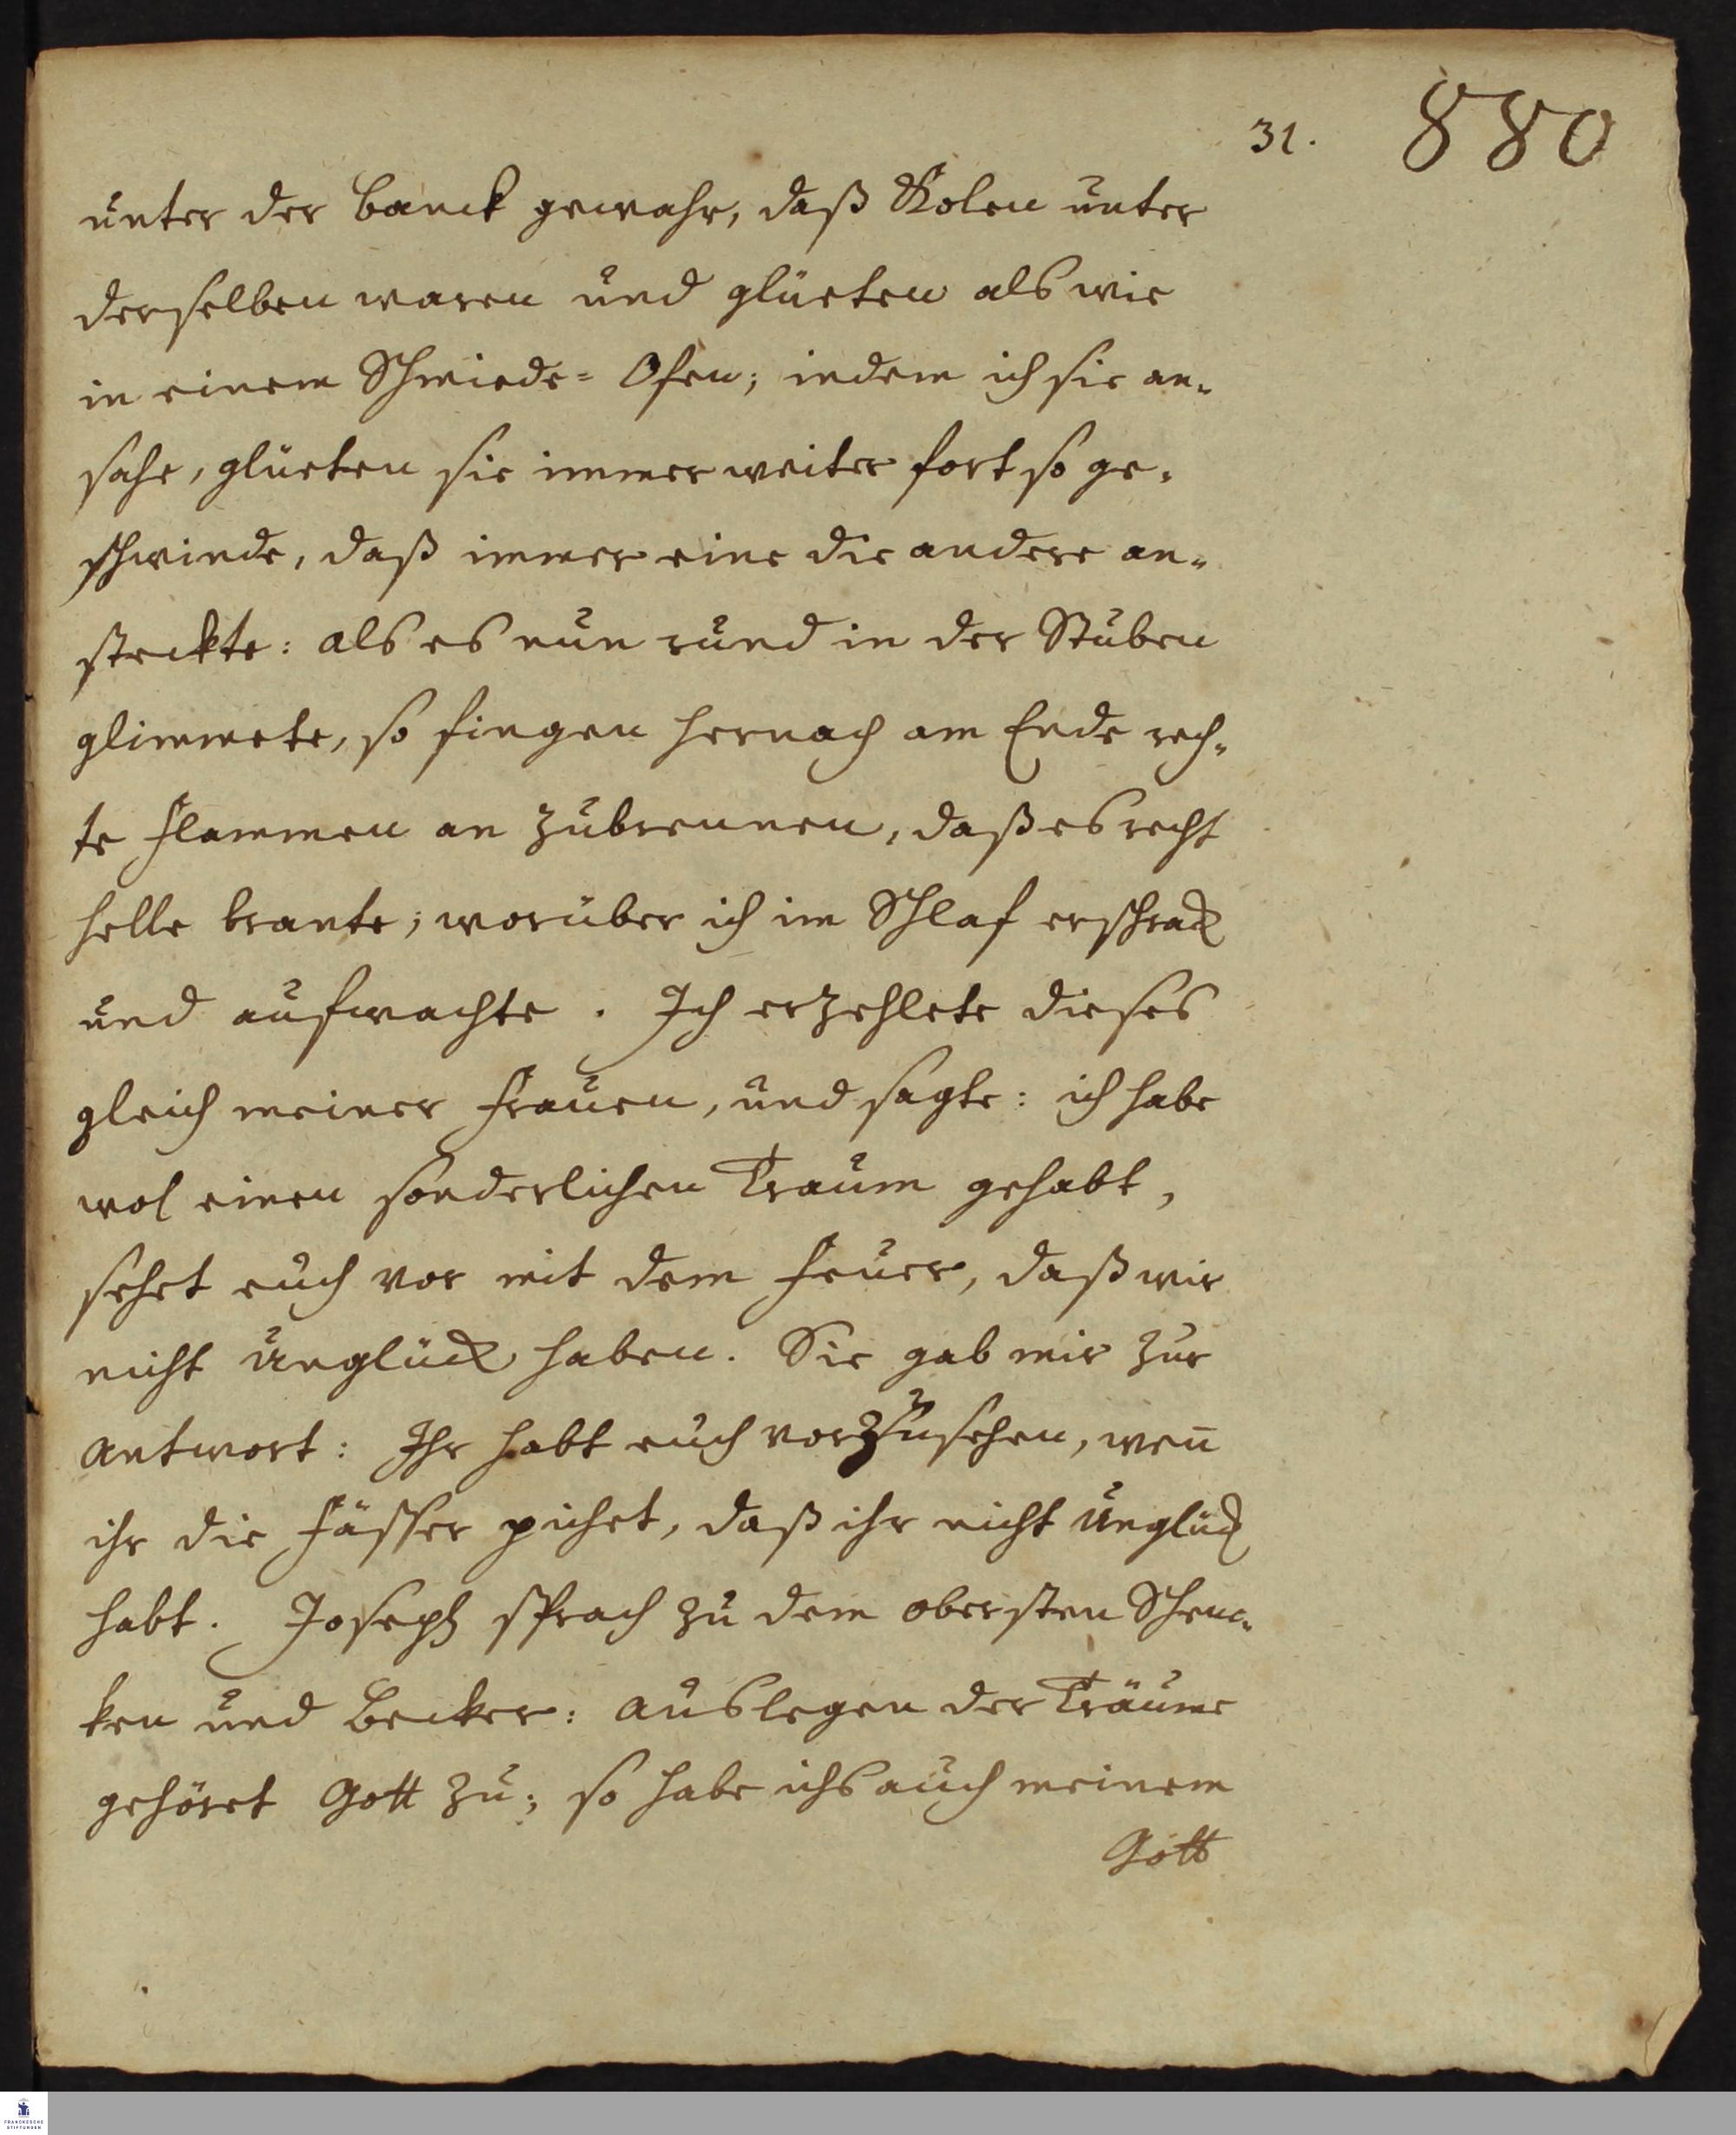 31. 880
unter der Banck gewahr, daß Kolen unter
derselben waren und glüeten als wie
in einem Schmiede= Ofen; indem ich sie an-
sahe, glüeten sie immer weiter fort so ge-
schwinde, daß immer eine die andere an-
steckte: als es nun rund in der Stuben
glimmete, so fingen hernach am Ende rech-
te Flammen an zubrennen, daß es recht
helle brante; worüber ich im Schlaf erschrack
und aufwachte. Ich erzehlete dieses
gleich meiner Frauen, und sagte: ich habe
wol einen sonderlichen Traum gehabt,
sehet euch vor mit dem Feuer, daß wir
nicht Unglück haben. Sie gab mir zur
Antwort: Ihr habt euch vorzusehen, wen̄
ihr die Fässer pichet, daß ihr nicht Unglück
habt. Joseph sprach zu dem obersten Schen-
ken und Becker: Auslegen der Träume
gehöret Gott zu; so habe ichs auch meinem
Gott
FRANCKESCHE
STIFTUNGEN